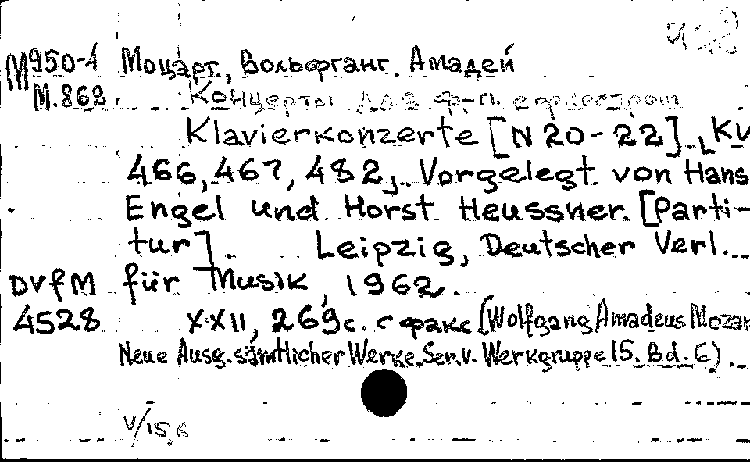 М950-1 Моцарт, Вольфганг Амадей
М.862. Концерты для ф-п. с оркестром
Klavierkonzerte [N 20-22], KV
466, 467, 482. Vorgelegt von Hans
Engel und Horst Heussner. [Parti-
tur]. Leipzig, Deutscher Verl.
DVfM für Musik, 1962.
4528 XXII, 269 с. с факс (Wolfgang Amadeus Mozar
Neue Ausg. sämtlicher Werke. Ser. V. Werkgruppe 15. Bd. 6)
V/15,6